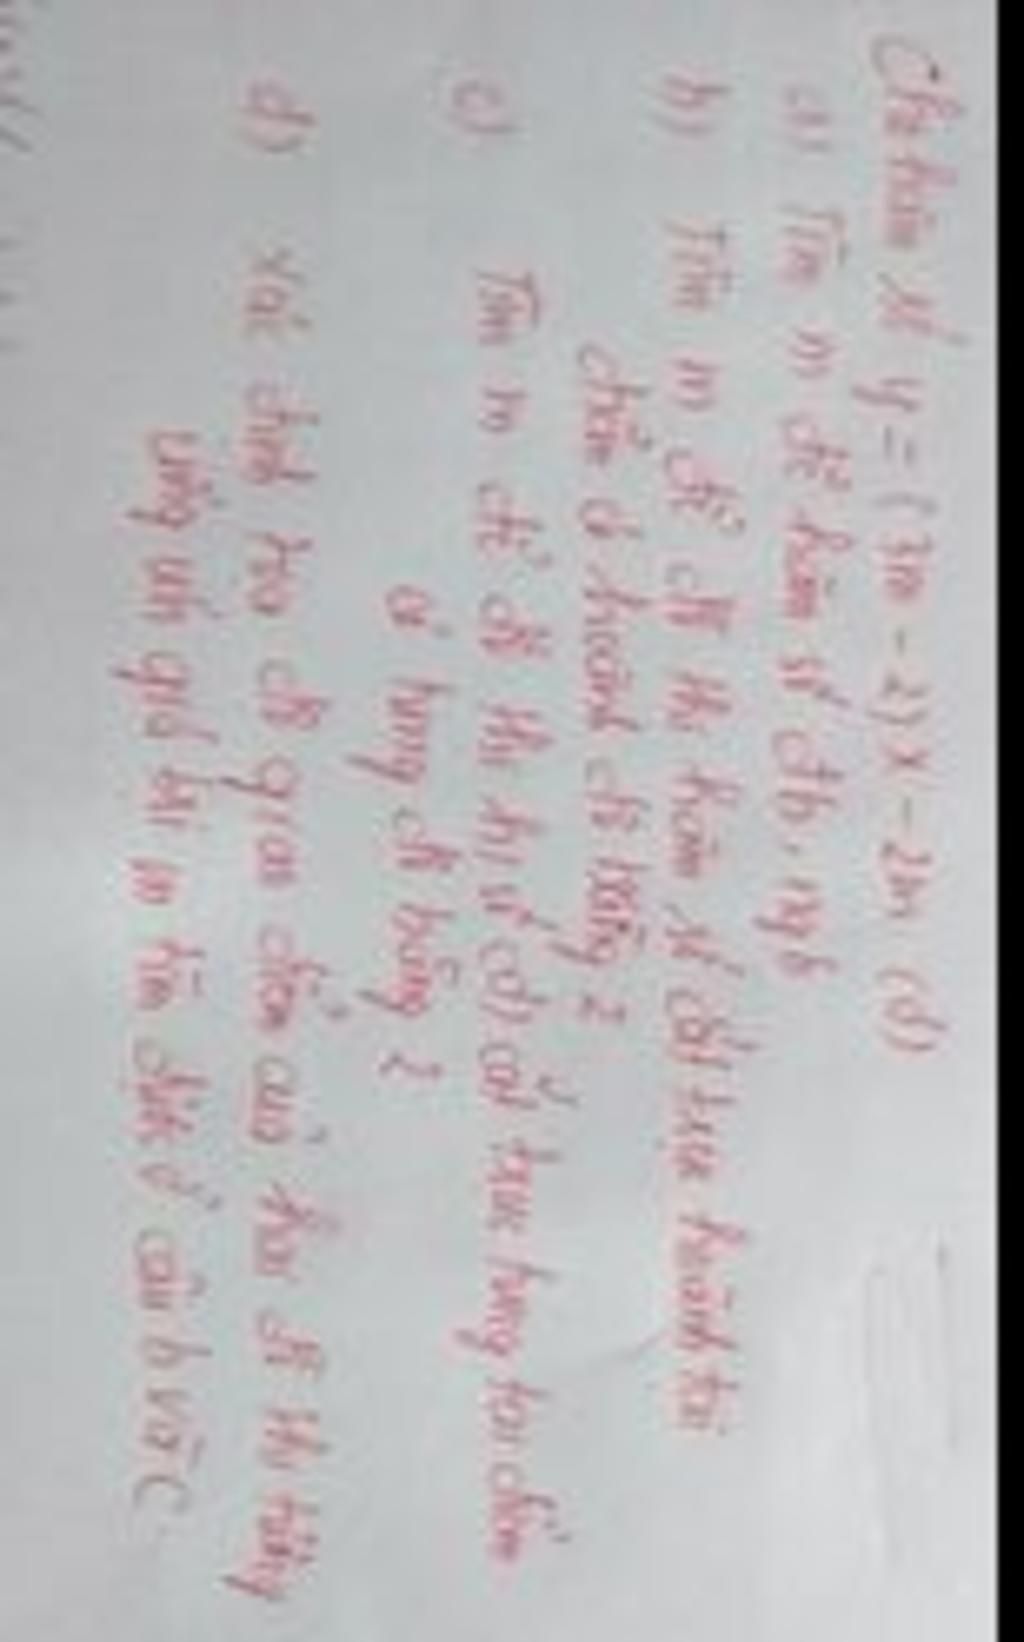 Cho hàm số y = (3m - 2)x - 2m (d)
a) Tìm m để hàm số đb, ngb
b) Tìm m để đồ thị hàm số cắt trục hoành tại
điểm có hoành độ bằng 2
c) Tìm m để đồ thị h/số (d) cắt trục tung tại điểm
có tung độ bằng 2
d) xác định toạ độ giao điểm của hai đồ thị tương
ứng với giá trị m tìm được ở câu b và c